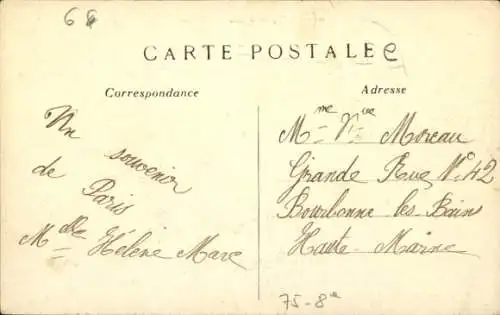 68
CARTE POSTALE e
Correspondance
Un souvenir
de Paris
Mdlle Hélène Mare
Adresse
Mme Vve Moreau
Grande Rue No 42
Bourbonne les Bains
Haute-Marne
75-8e